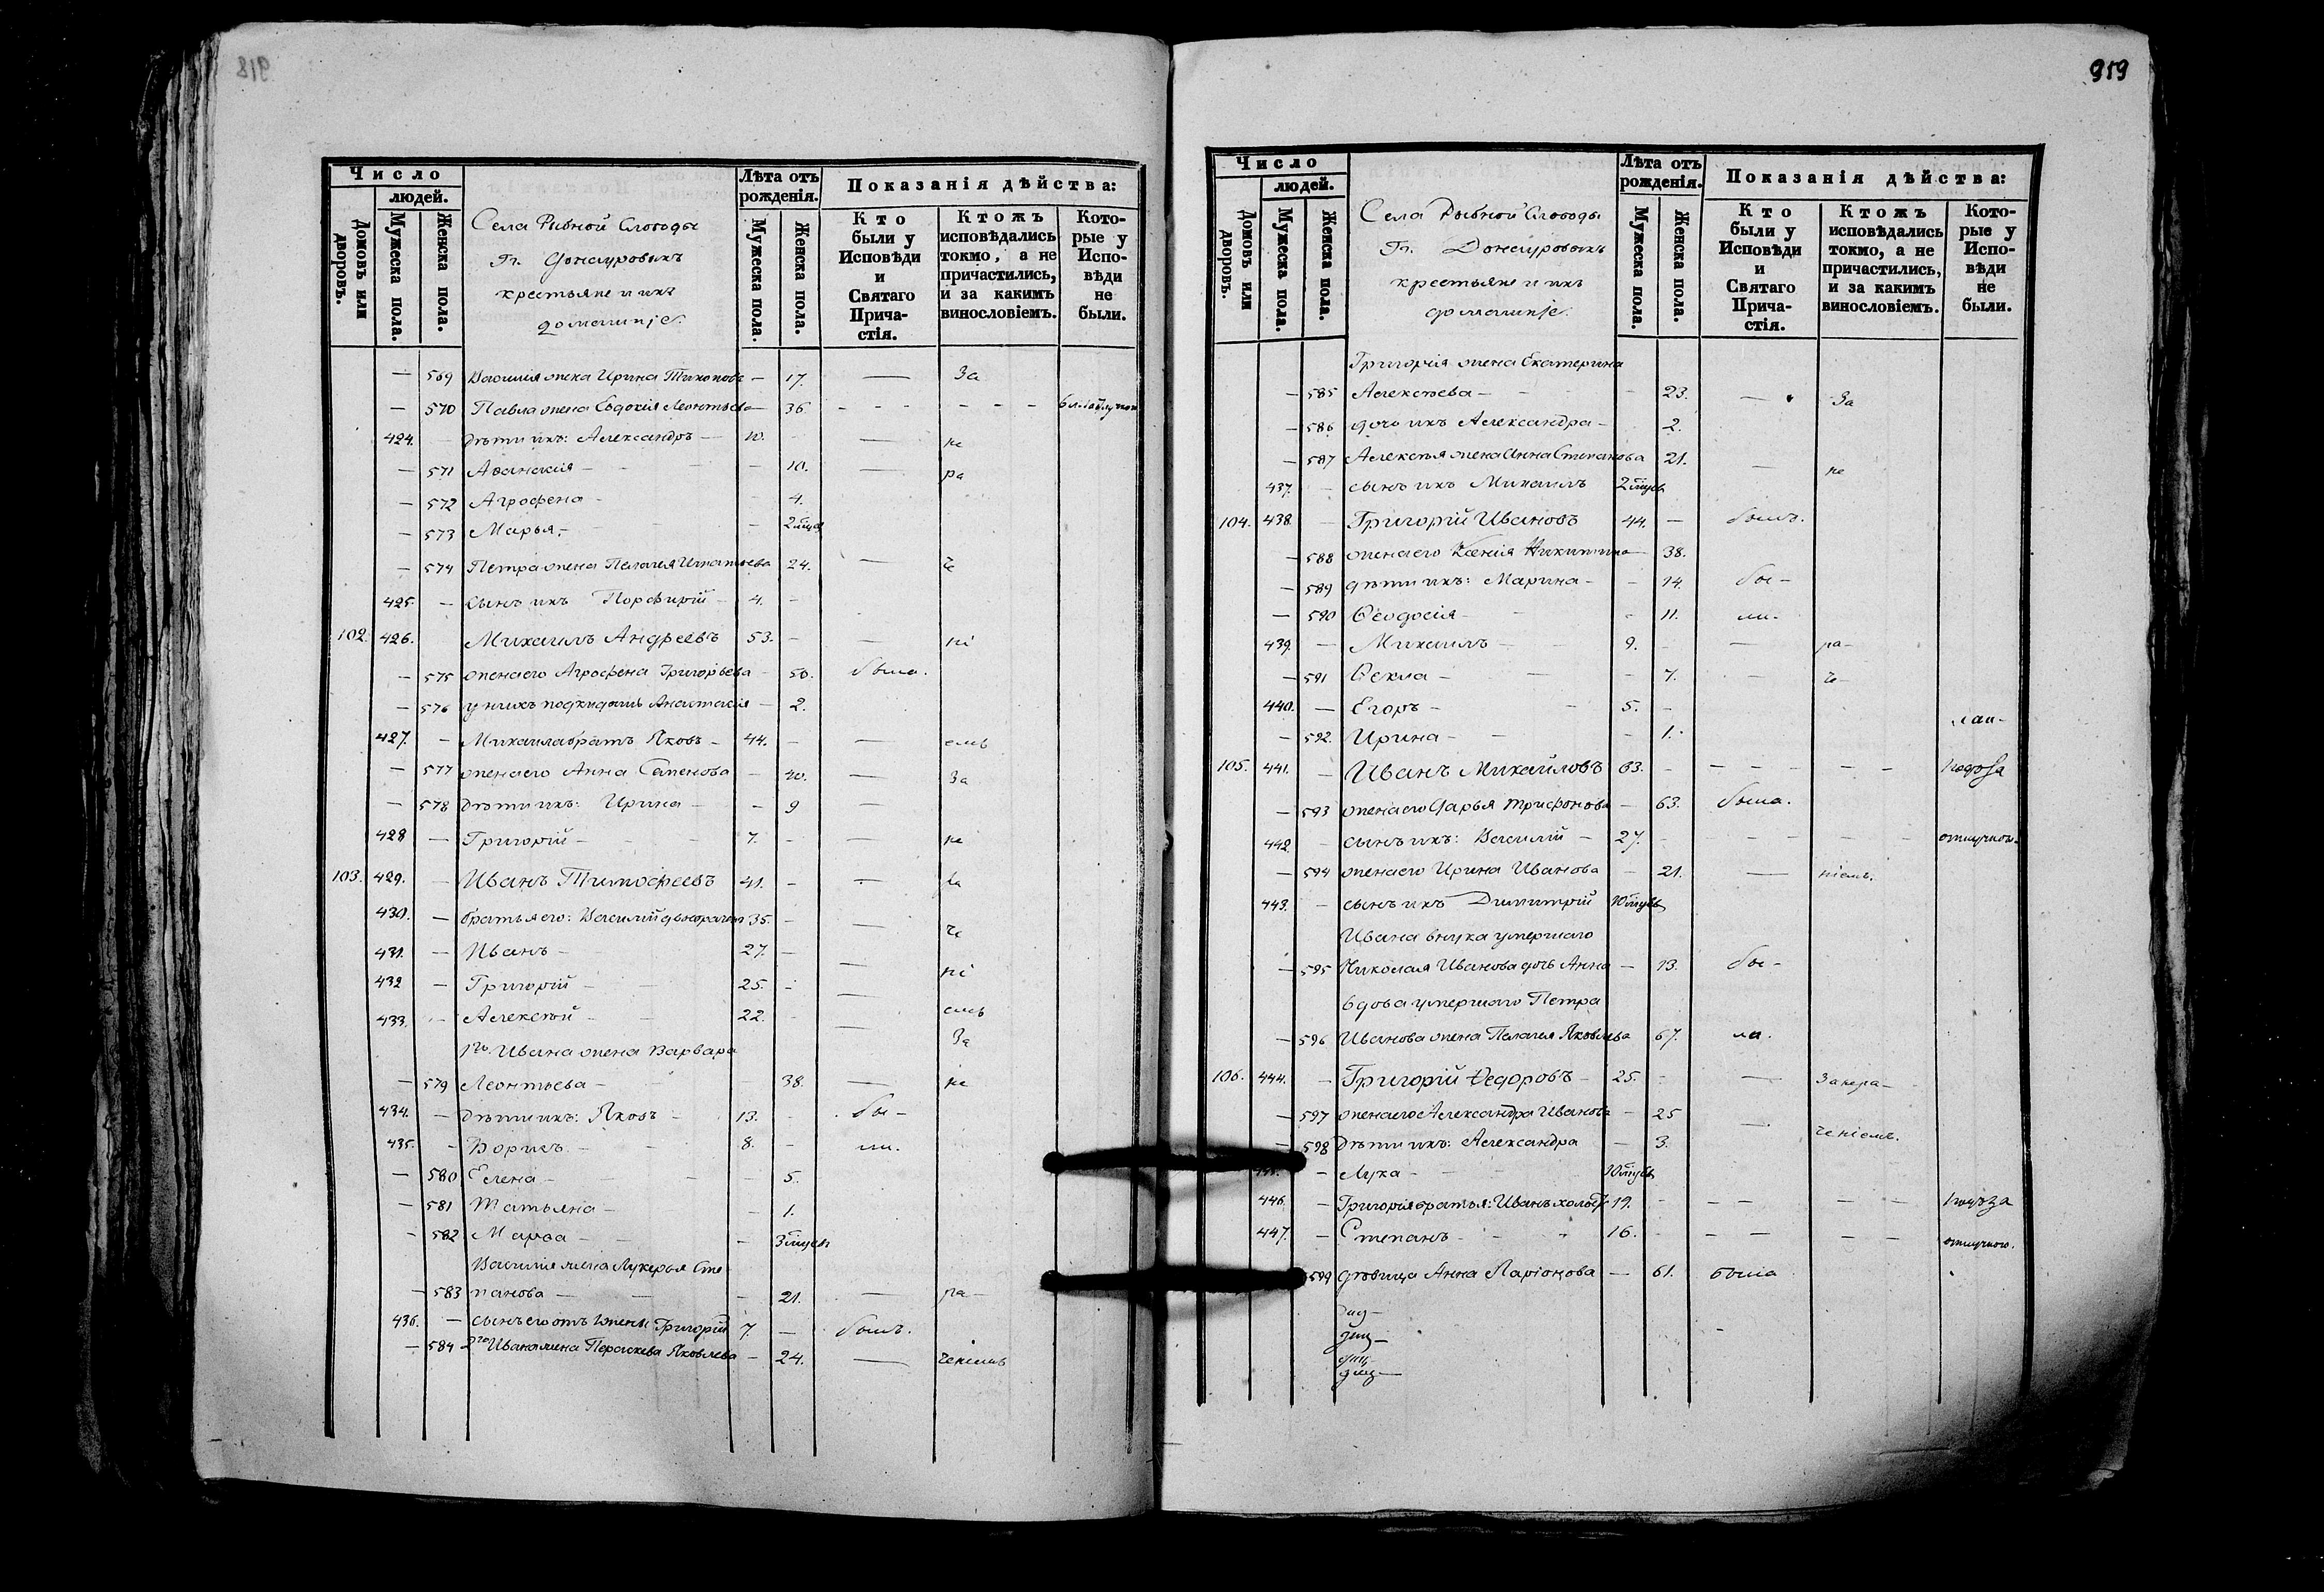 Число
людей.
Домовъ или дворовъ.
Мужеска пола.
Женска пола.
Села Рыбной Слободы
Гг. Донауровыхъ
крестьяне и ихъ
домашніе.
Лѣта отъ рожденія.
Мужеска пола.
Женска пола.
Показанія дѣйства:
Кто были у Исповѣди и Святаго Причастія.
Ктожъ исповѣдались токмо, а не причастились, и за какимъ винословіемъ.
Которые у Исповѣди не были.
— 569 Василія жена Ирина — 17. — За
— 570 Павла жена Евдокія Леонтьева — 36. - - - - - -
424. — дѣти ихъ: Александръ — 10. - — не
— 571 Аѳанасія — - 10. — ра
— 572 Агрофена - - 4.
— 573 Марья. — -
— 574 Петра жена Пелагея Игнатьева 24. — че
425. — сынъ ихъ Порфирій — 4. -
102. 426. Михаилъ Андреевъ 53. - — ні
— 575 жена его Агрофена Григорьева — 50. была.
— 576 у нихъ подкидышъ Анастасія — 2.
427. — Михаила братъ Яковъ — 44. - — емъ
— 577 жена его Анна Семенова — 40. — За
— 578 дѣти ихъ: Ирина — - 9 —
428 — Григорій — 7. - — не
103. 429. — Иванъ Тимофеевъ 41. - — ра
430. — братья его: Василій 35. - че
431. — Иванъ — 27. - —
432 — Григорій — 25. - — ні
433. — Алексѣй — 22. - — емъ
1го Ивана жена Варвара За
— 579 Леонтьева — 38. — не
434. — дѣти ихъ: Яковъ — 13. - бы-
435. - Борисъ — 8. - ли.
— 580 Елена — - 5.
— 581 Татьяна — - 1.
- 582 Марѳа — -
Василія жена Лукерья Сте
— 583 панова — - 21. — ра-
436. — сынъ его отъ 1 жены Григорій 7. — былъ.
— 584 2го Ивана жена Параскева Яковлева — 24. — ченіемъ
819
Число
людей.
Домовъ или дворовъ.
Мужеска пола.
Женска пола.
Села Рыбной Слободы
Гг. Донауровыхъ
крестьяне и ихъ
домашніе.
Лѣта отъ рожденія.
Мужеска пола.
Женска пола.
Показанія дѣйства:
Кто были у Исповѣди и Святаго Причастія.
Ктожъ исповѣдались токмо, а не причастились, и за какимъ винословіемъ.
Которые у Исповѣди не были.
Григорія жена Екатерина
— 585 Алексѣева — - 23. — За
— 586 дочь ихъ Александра — 2.
— 587 Алексѣя жена Анна Степанова 21. — не
437. — сынъ ихъ Михаилъ
104. 438. — Григорій Ивановъ 44. — былъ.
— 588 жена его Ксенія Никитина — 38.
— 589 дѣти ихъ: Марина — - 14. бы-
— 590 Ѳеодосія — - 11. ли-
439. — Михаилъ — 9. - — ра-
— 591 Ѳекла — - 7. — че-
440. — Егоръ — 5. -
— 592. Ирина — - 1.
105. 441. — Иванъ Михайловъ 63. - - - - - -
— 593 жена его Дарья Трифонова — 63. была.
442. - сынъ ихъ: Василій — 27. - - - - - отлучкою.
— 594 жена его Ирина Иванова — 21. — ніемъ.
443. - сынъ ихъ Димитрій
Ивана внука умершаго
— 595 Николая Иванова дочь Анна — 13. бы-
вдова умершаго Петра
— 596 Иванова жена Пелагея Яковлева 67. ла.
106. 444. — Григорій Ѳедоровъ — 25. - — За нера-
— 597 жена его Александра Иванова — 25 —
— 598 дѣти ихъ: Александра — 3. ченіемъ.
— Лука —
446. — Григорія братья: Иванъ 19. - - - - -
447. — Степанъ — 16. - - - - - отлучкою.
599 дѣвица Анна Ларіонова — 61. была